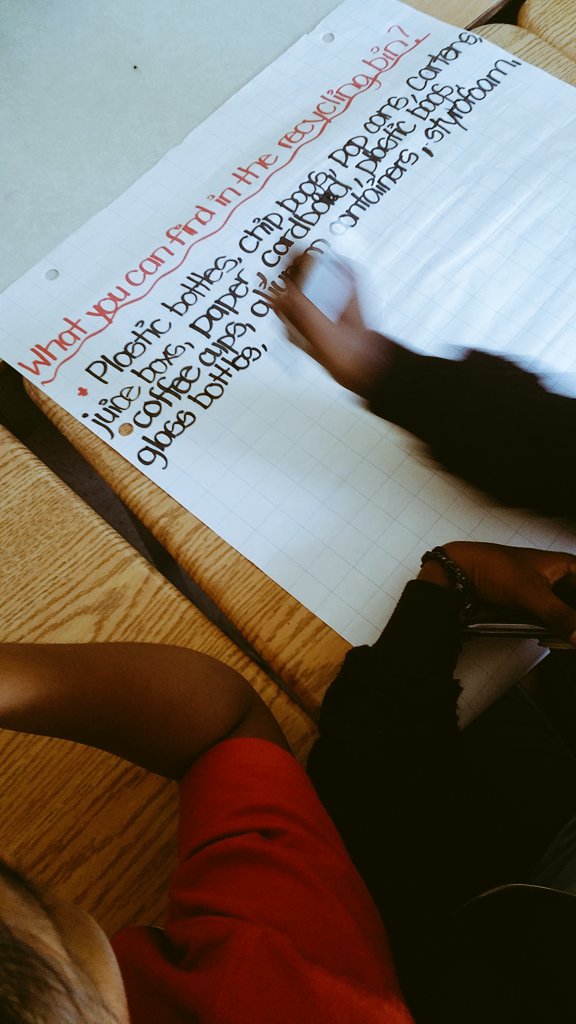 What you can find in the recycling bin?
* Plastic bottles, chip bags, pop cans, cartons,
juice boxs, paper, cardboard, plastic bags,
coffee cups, containers, styrofoam,
glass bottles,